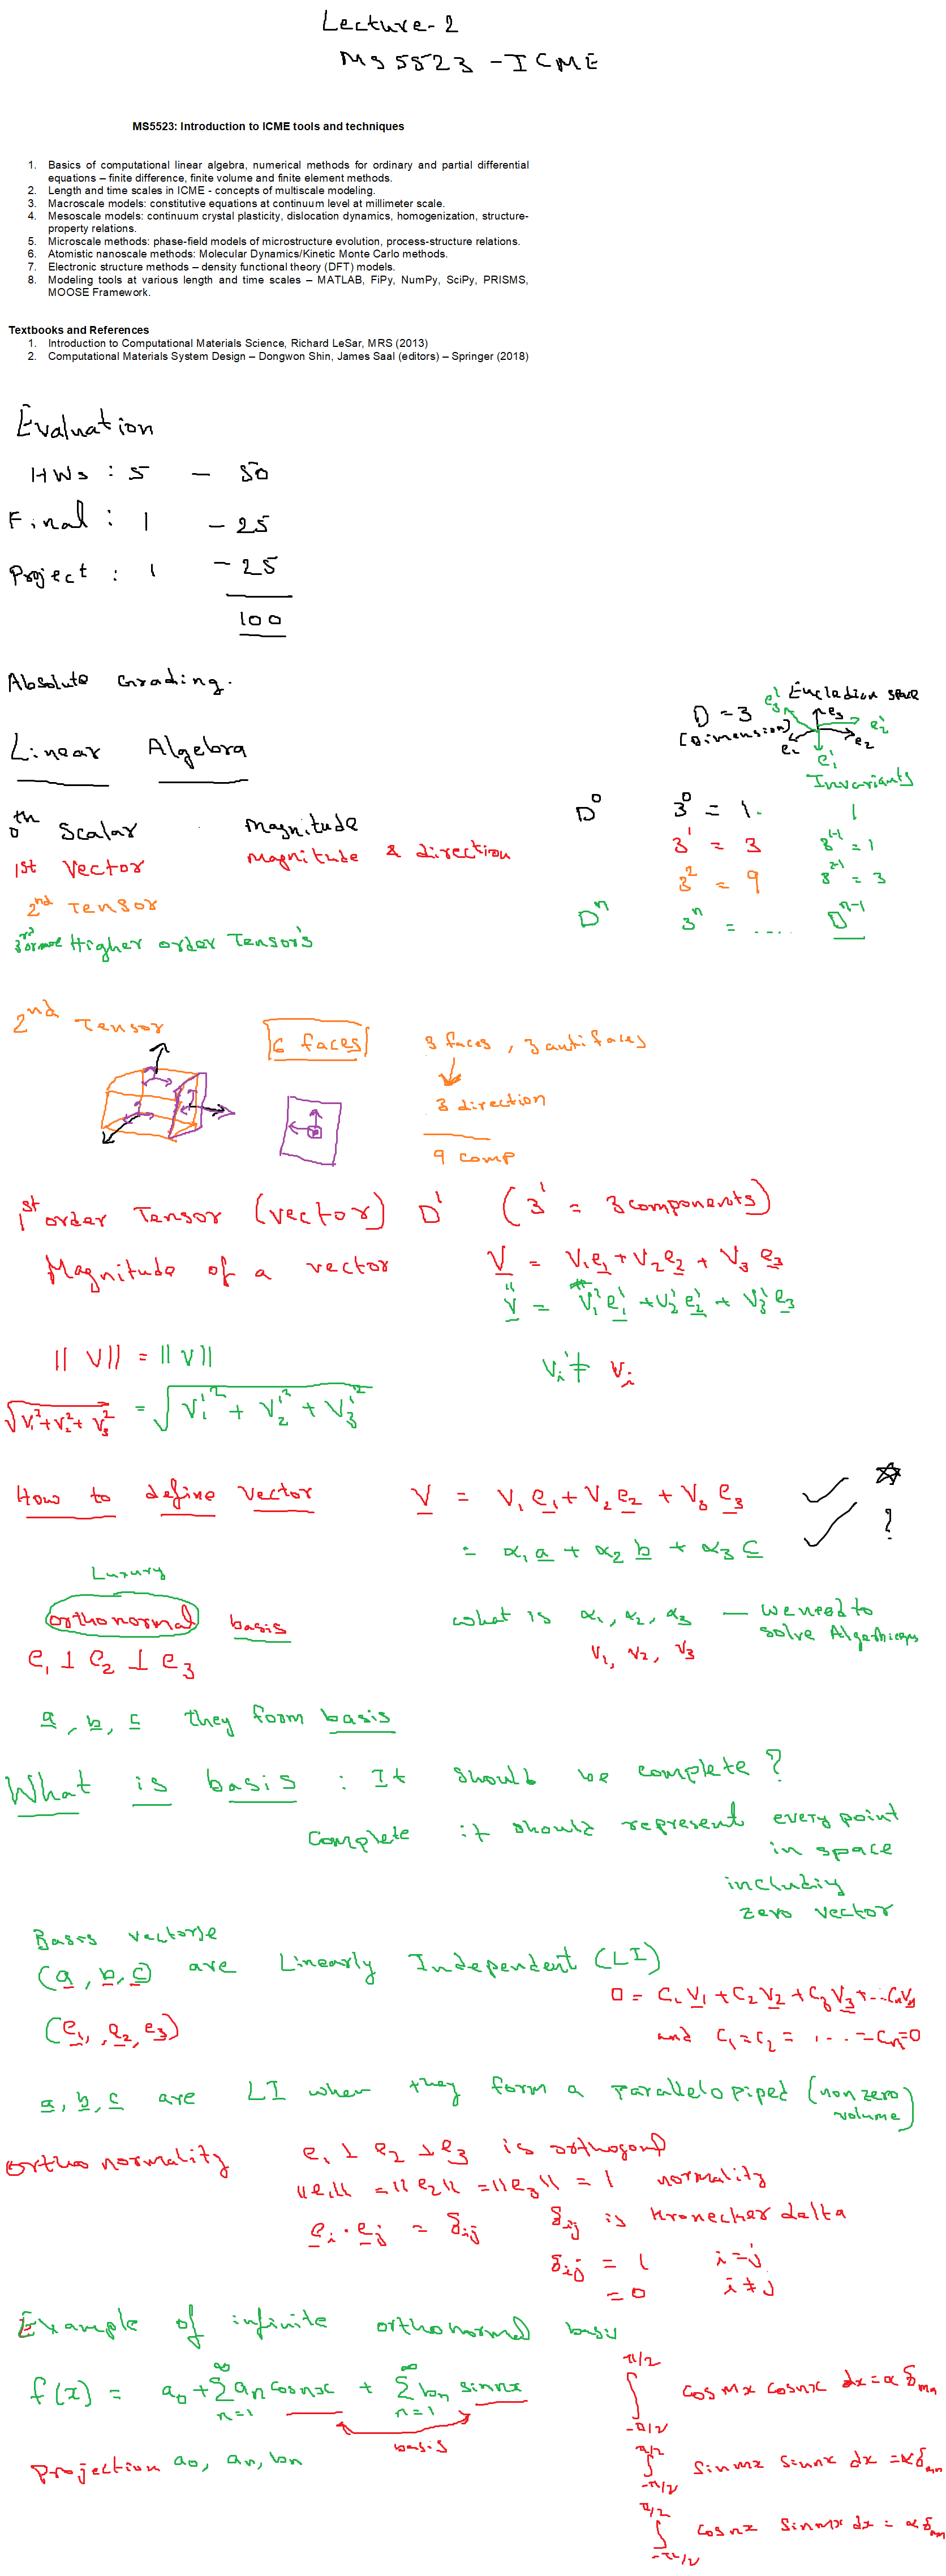 Lecture-2
MS5523 - ICME
MS5523: Introduction to ICME tools and techniques
1. Basics of computational linear algebra, numerical methods for ordinary and partial differential
equations – finite difference, finite volume and finite element methods.
2. Length and time scales in ICME - concepts of multiscale modeling.
3. Macroscale models: constitutive equations at continuum level at millimeter scale.
4. Mesoscale models: continuum crystal plasticity, dislocation dynamics, homogenization, structure-
property relations.
5. Microscale methods: phase-field models of microstructure evolution, process-structure relations.
6. Atomistic nanoscale methods: Molecular Dynamics/Kinetic Monte Carlo methods.
7. Electronic structure methods – density functional theory (DFT) models.
8. Modeling tools at various length and time scales – MATLAB, FiPy, NumPy, SciPy, PRISMS,
MOOSE Framework.
Textbooks and References
1. Introduction to Computational Materials Science, Richard LeSar, MRS (2013)
2. Computational Materials System Design – Dongwon Shin, James Saal (editors) – Springer (2018)
Evaluation
HWs : 5 - 50
Final : 1 - 25
Project : 1 - 25
100
Absolute Grading.
D = 3
(Dimension)
Eucledian space
e₃' e₃ e₂' e₂ e₁'
Linear Algebra
Invariants
0th Scalar Magnitude D⁰ 3⁰ = 1. 1
1st Vector Magnitude & direction 3¹ = 3 3¹⁻¹ = 1
2nd Tensor 3² = 9 3²⁻¹ = 3
3rd or more Higher order Tensor's Dⁿ 3ⁿ = .... Dⁿ⁻¹
2nd Tensor
6 faces
3 faces, 3 antifaces
3 direction
9 comp
1st order Tensor (vector) D¹ (3¹ = 3 components)
Magnitude of a vector V = V₁e₁ + V₂e₂ + V₃e₃
V = V₁'e₁' + V₂'e₂' + V₃'e₃
||V|| = ||V|| Vᵢ' ≠ Vᵢ
√V₁²+V₂²+V₃² = √V₁'² + V₂'² + V₃'²
How to define vector V = V₁e₁ + V₂e₂ + V₃e₃ ✓ ☆
= α₁a + α₂b + α₃c ✓ ?
Luxury
orthonormal basis
what is α₁, α₂, α₃ — we need to
solve
V₁, V₂, V₃
e₁ ⊥ e₂ ⊥ e₃
a, b, c they form basis
What is basis : It should be complete?
Complete it should represent every point
in space
including
zero vector
Basis vectors
(a, b, c) are Linearly Independent (LI)
0 = C₁V₁ + C₂V₂ + C₃V₃ + ...CₙVₙ
(e₁, e₂, e₃)
and C₁ = C₂ = .... = Cₙ = 0
a, b, c are LI when they form a parallelopiped (non zero
volume)
Ortho normality e₁ ⊥ e₂ ⊥ e₃ is orthogonal
||e₁|| = ||e₂|| = ||e₃|| = 1 normality
eᵢ · eⱼ = δᵢⱼ δᵢⱼ is Kronecker delta
δᵢⱼ = 1 i = j
= 0 i ≠ j
Example of infinite orthonormal basis
f(x) = a₀ + ∑ₙ₌₁^∞ aₙ cosnx + ∑ₙ₌₁^∞ bₙ sinnx
basis
projection a₀, aₙ, bₙ
∫_{-π/2}^{π/2} cosmx cosnx dx = α δₘₙ
∫_{-π/2}^{π/2} sinmx sinnx dx = α δₘₙ
∫_{-π/2}^{π/2} cosnx sinmx dx = α δₙₘ